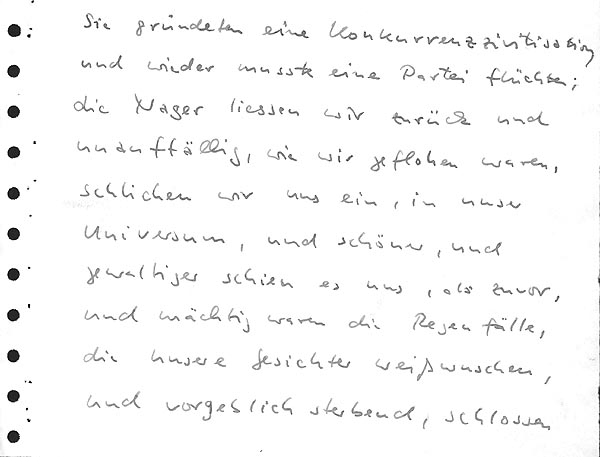 Sie gründeten eine Konkurrenzzivilisation
und wieder musste eine Partei flüchten;
die Nager liessen wir zurück und
unauffällig, wie wir geflohen waren,
schlichen wir uns ein, in unser
Universum, und schöner, und
gewaltiger schien es uns, als zuvor,
und mächtig waren die Regenfälle,
die unsere Gesichter weißwuschen,
und vorgeblich sterbend, schlossen